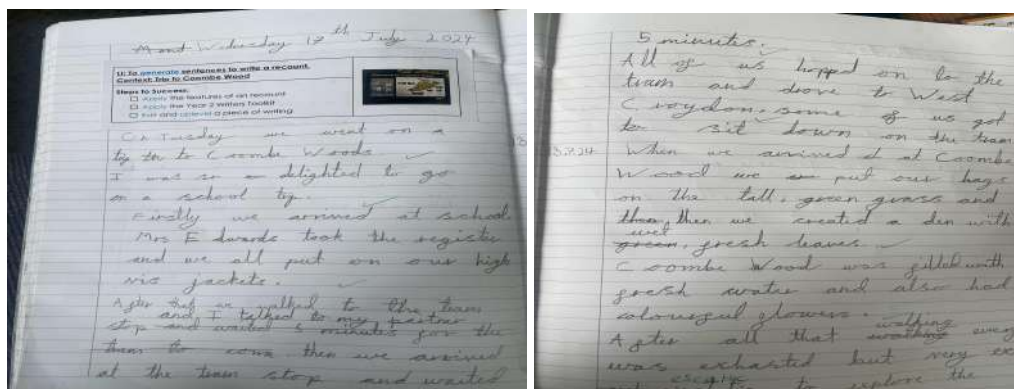 Wednesday 17th July 2024
LI: To generate sentences to write a recount.
Context: Trip to Coombe Wood
Steps to Success:
Apply the features of an recount
Apply the Year 2 Writers Toolkit
Edit and uplevel a piece of writing
On Tuesday we went on a
to Coombe Woods
I was so delighted to go
on a school trip.
Firstly we arrived at school
Mrs Edwards took the register
and we all put on our high
vis jackets.
After that we walked to the tram
and I talked to my partner
stop and waited 5 minutes for the
tram to come. then we arrived
at the tram stop and waited
5 minutes.
All of us hopped on to the
tram and drove to West
Croydon. some of us got
to sit down on the tram
When we arrived at Coombe
Wood we put our bags
on the tall, green grass and
then, then we created a den with
wet
green, fresh leaves.
Coombe Wood was filled with
fresh water and also had
colourful flowers.
walking
After all that every
was exhasted but very ex
to explore the